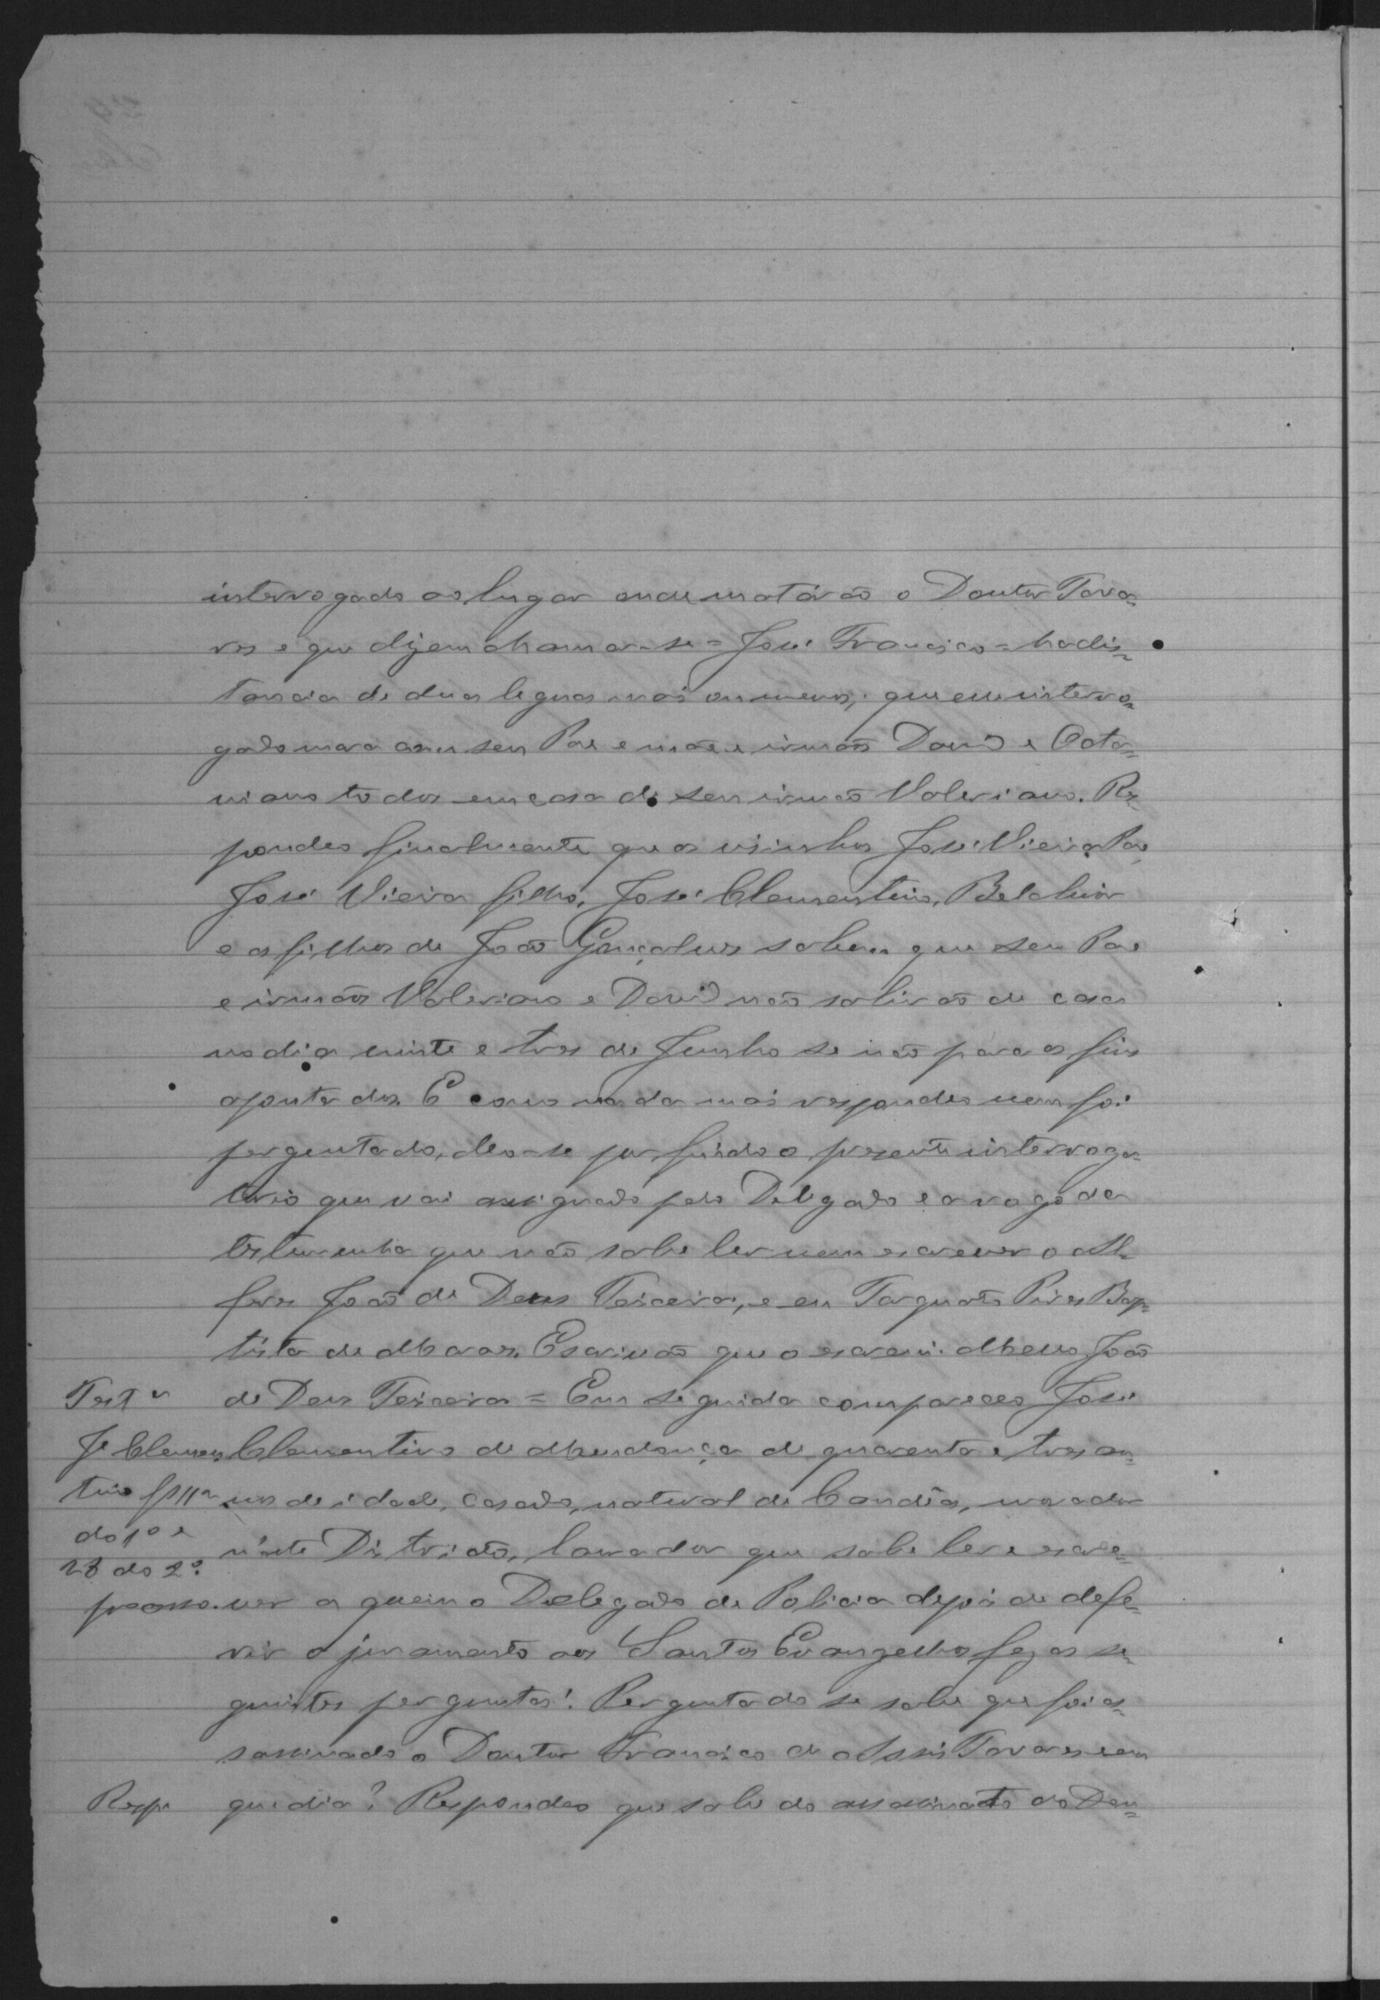 interrogado ao lugar onde matárão o Doutor Tava-
res e que dizem chamar-se = José Francisco = ha dis-
tancia de duas leguas mais ou menos; que elle interro-
gado mora com seu Pae e mãe e irmãos David e Octa-
viano todos em casa de seu irmão Valeriano. Res-
pondeo finalmente que os visinhos José Vieira Pae,
José Vieira filho, José Clementino, Belchior
e os filhos de João Gonçalves sabem que seu Pae
e irmãos Valeriano e David não sahirão de casa
no dia vinte e tres de Junho se não para os fins
apontados. E como nada mais respondeo nem foi
perguntado, deo-se por findo o presente interroga-
torio que vai assignado pelo Delegado e a rogo da
testemunha que não sabe ler nem escrever o Al-
feres João de Deus Teixeira, e eu Torquato Pires Bap-
tista de Escrivão que o escrevi. João
de Deus Teixeira = Em seguida compareceo José
Clementino de Mendonça de quarenta e tres an-
nos de idade, casado, natural de Candêas, morador
n'este Districto, lavrador que sabe ler e escre-
ver a quem o Delegado de Policia depois de defe-
rir o juramento aos Santos Evangelhos fez as se-
guintes perguntas: Perguntado se sabe que foi as-
sassinado o Doutor Francisco de Assis Tavares e em
que dia? Respondeo que sabe do assassinato do Dou-
Test.ª
Jé Clemen-
tino fs 11
do 1º e
28 do 2º
processo.
Resp.